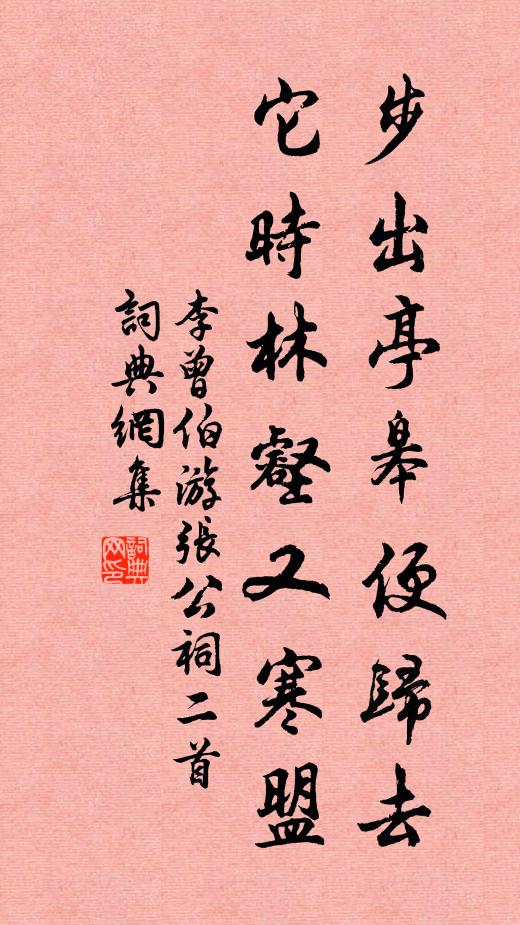 步出亭皋便歸去
它時林壑又寒盟
李曾伯游張公祠二首
詞典網集
詞典網印